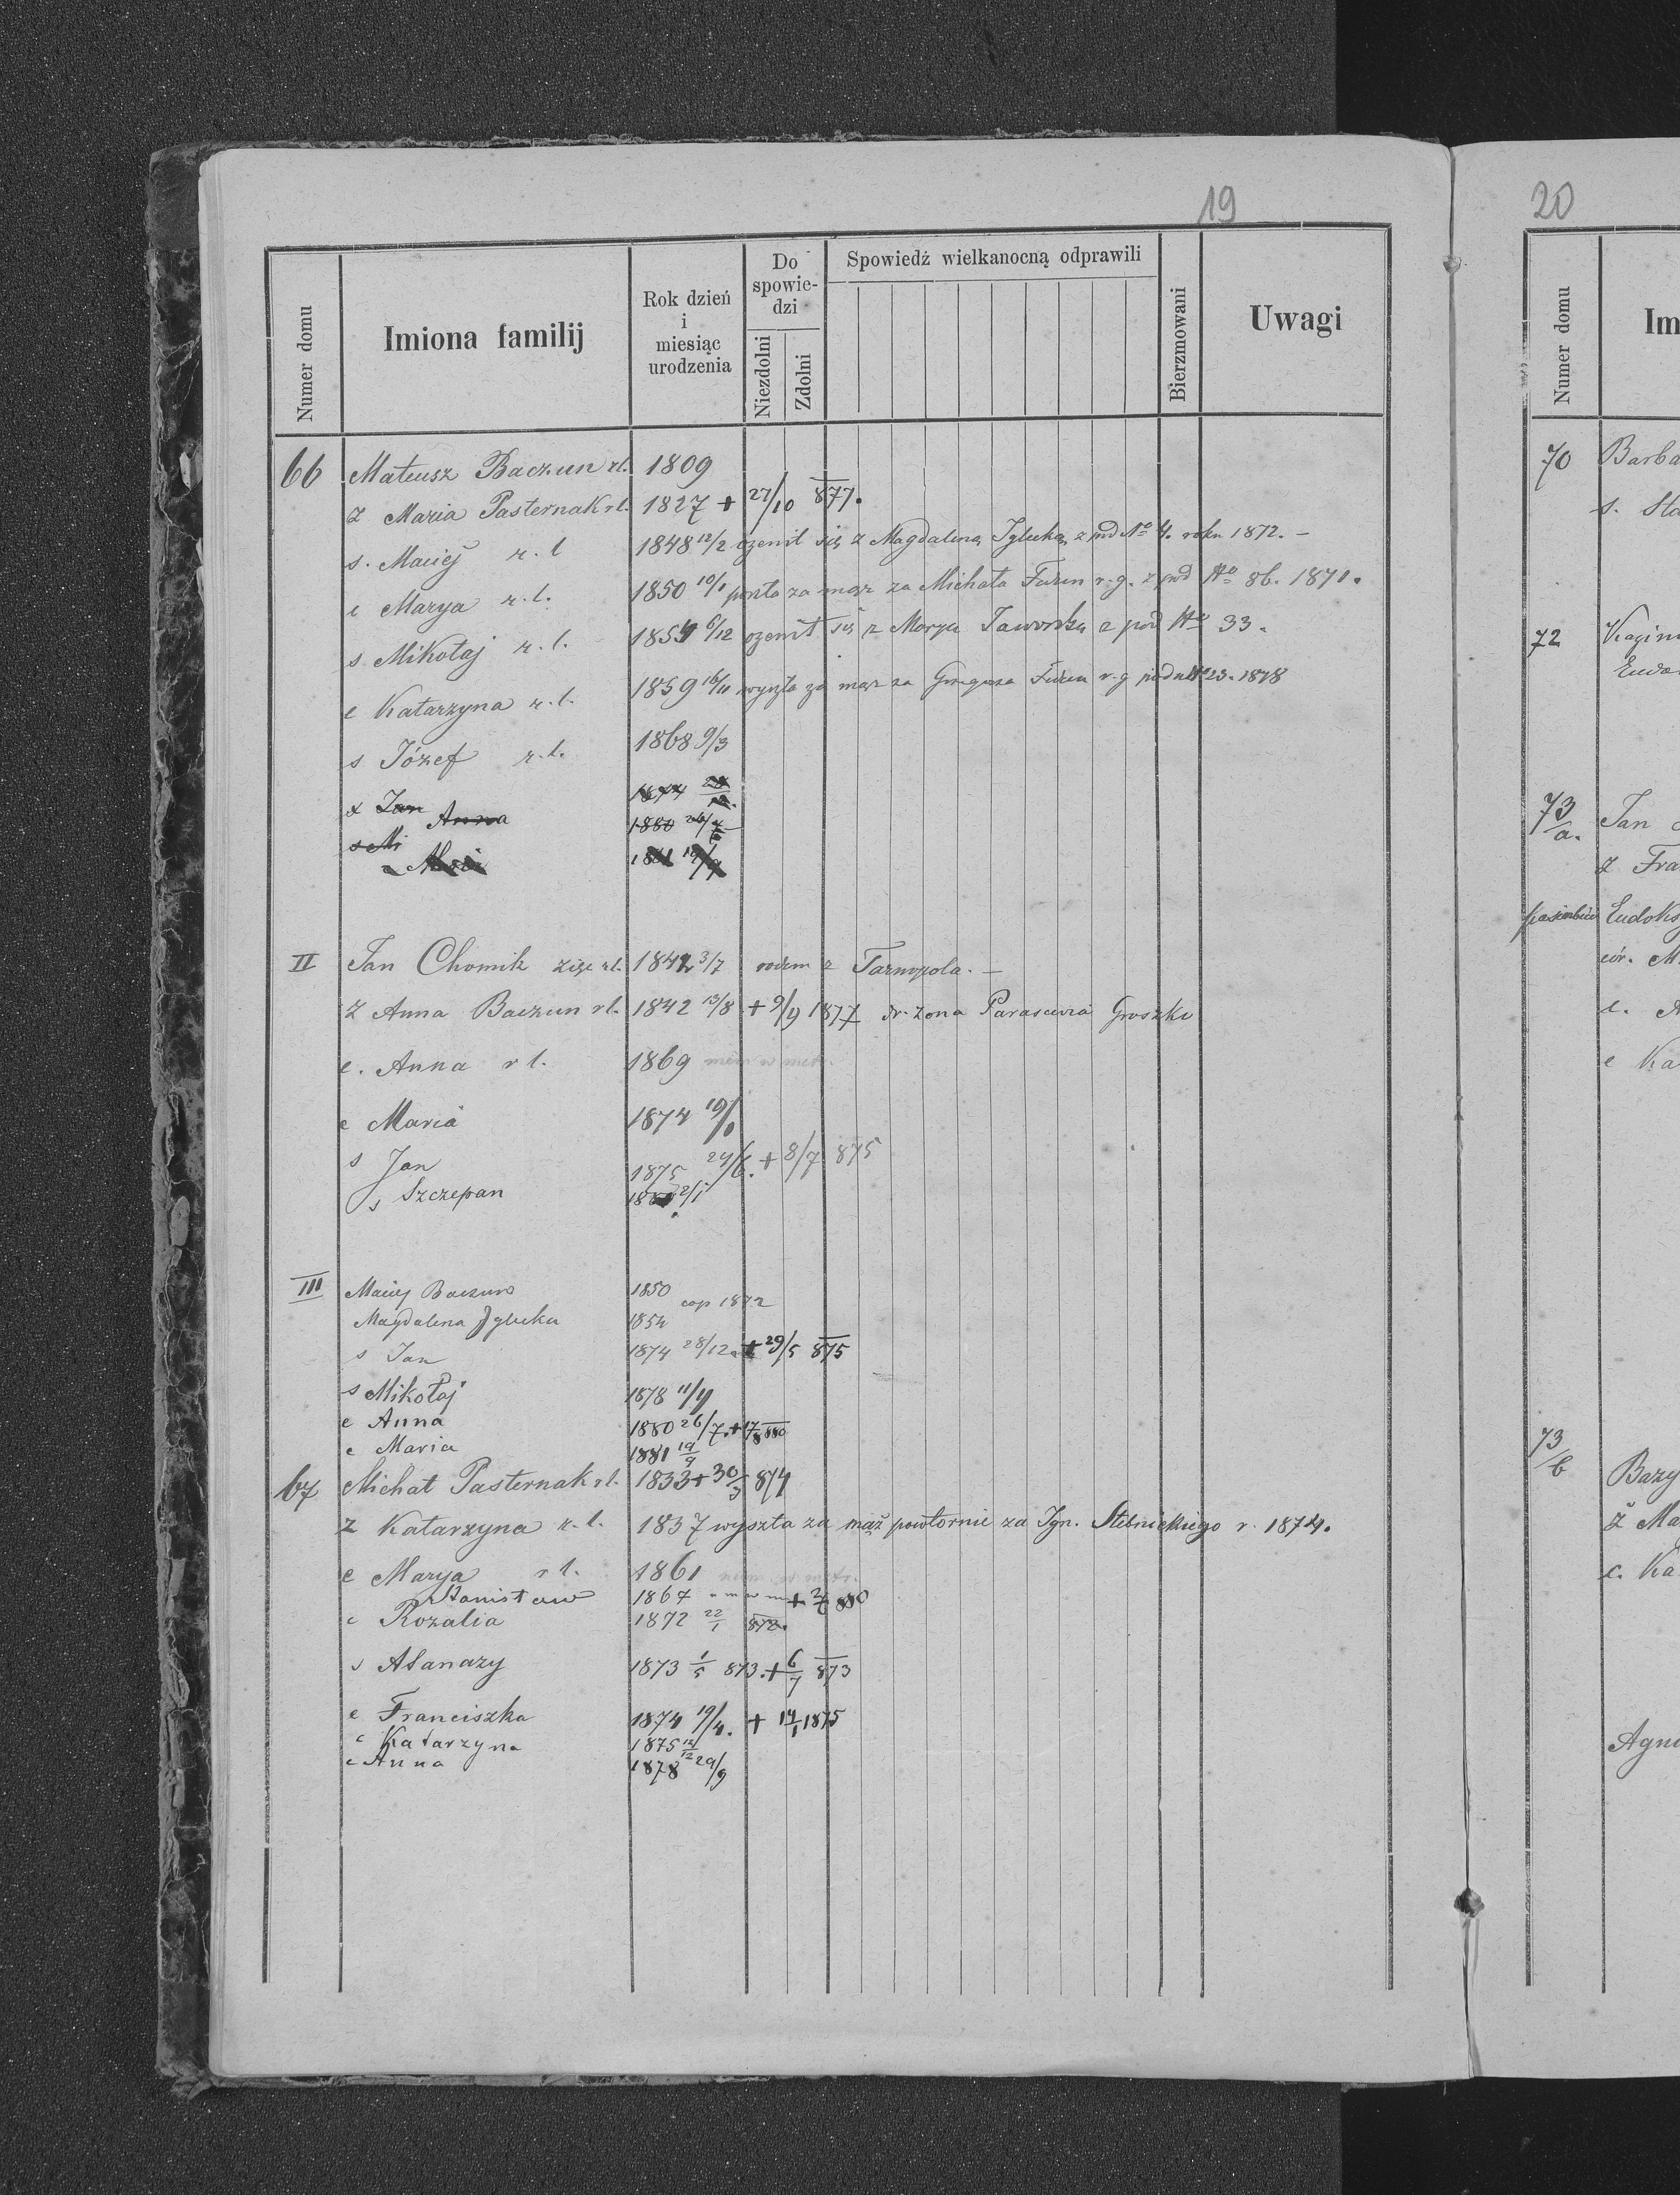 19
Numer domu
Imiona familij
Rok dzień i miesiąc urodzenia
Do spowiedzi
Niezdolni
Zdolni
Spowiedź wielkanocną odprawili
Bierzmowani
Uwagi
66 Mateusz Baczun rl. 1809
Z Maria Pasternak rl. 1827 + 27/10 877.
s. Maciej r. l 1848 12/2 ożenił się z Magdaleną z pod No 4. roku 1872. –
c Marya r. l. 1850 10/1 za mąż za Michała r. g. z pod No 86. 1871.
s. Mikołaj r. l. 185 6/12 ożenił się z z pod No 33.
c Katarzyna r. l. 1859 16/11 wyszła za mąż za r. g 23. 1878
s Józef r. l. 1868 9/3
Jan 1874
Anna 1880 26/7
s Mi
II Jan Chomik rl. 1842 3/7 rodem z Tarnopola. –
Z Anna Baczun rl. 1842 13/8 + 9/9 1877 żona Groszko
c. Anna r l. 1869
c Maria 1874
s Jan 1875 24/6. + 8/7 875
s Szczepan 2/1
III Maciej Baczun 1850
cop 1872
Magdalena 1854
s Jan 1874 28/12 + 29/5 875
s Mikołaj 1878
c Anna 1880 26/7. + 17/8 880
c Maria 1881 19/9
67 Michał Pasternak rl. 1833 + 30/3 874
Z Katarzyna r. l. 1837 wyszła za mąż powtornie za Ign. Stebnickiego r. 1874.
c Marya r l. 1861
Stanisław 1867 880
c Rozalia 1872 22/1 872.
s Afanazy 1873 1/5 873. + 6/7 873
c Franciszka 1874 19/4. + 14/1 1875
c Katarzyna 1875
c Anna 1878 29/9
20
Numer domu
Im
70 Barba
s. Sta
72
73/a. Jan
Z Fra
Eudoks
cór. M
c. A
c Ka
73/b Bazy
Ż Ma
c. Ka
Agni